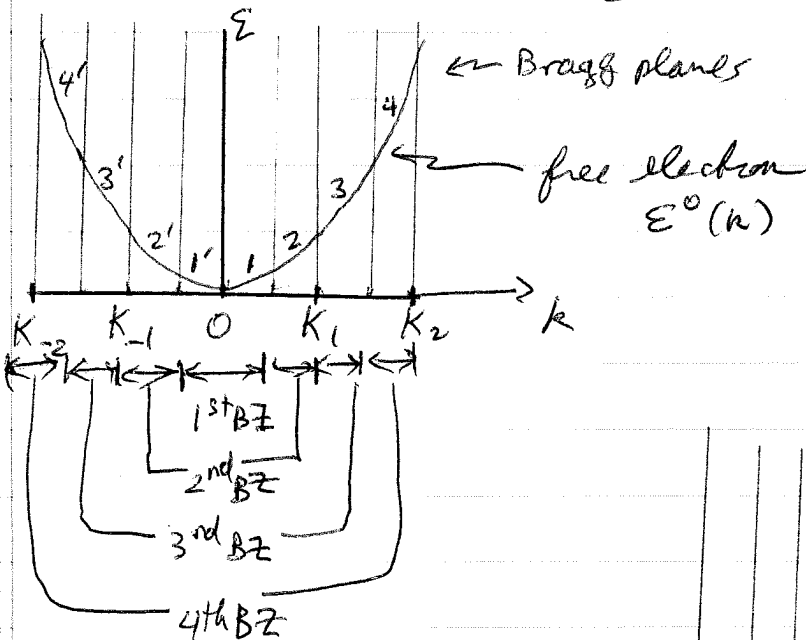 ε
← Bragg planes
4' 4
free electron
ε⁰(k)
3' 3
2' 2
1' 1
k
K₋₂ K₋₁ 0 K₁ K₂
1st BZ
2nd BZ
3rd BZ
4th BZ